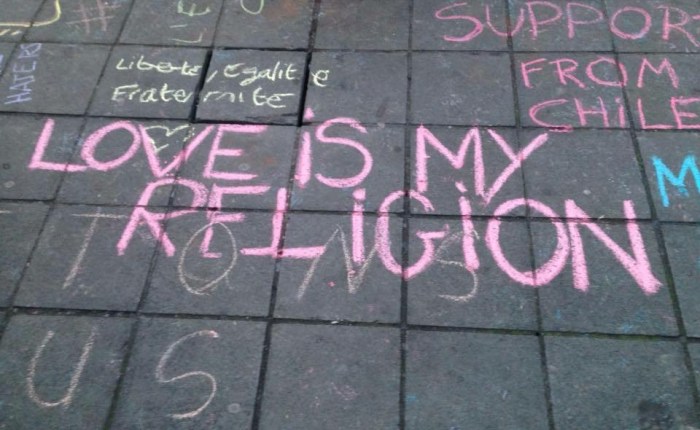 SUPPOR
Liberte, Egalite
Fraternite
FROM
CHiLE
LOVE iS MY
RELiGiON
M
TONS
US